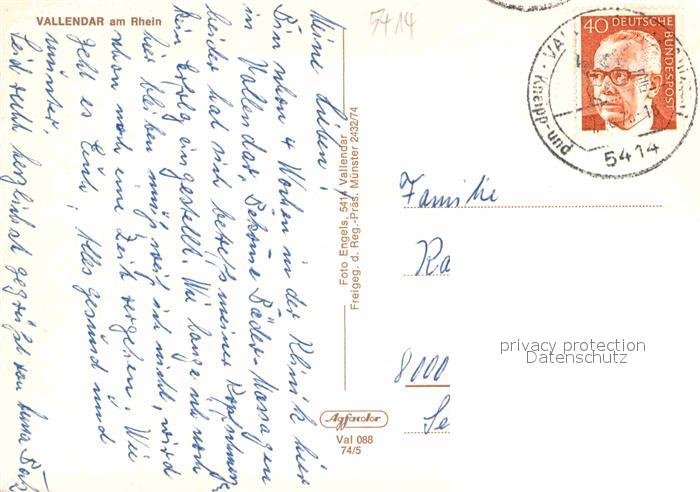 VALLENDAR am Rhein
5414
Meine Lieben!
Bin schon 4 Wochen in der Klinik hier
in Vallendar, Bekome Bäder Massagen
leider hat sich betreffs meiner Kopfschmerzen
kein Erfolg eingestellt. Wie lange ich noch
hier bleiben muß weiß ich nicht, wird
schon noch eine Zeit vergehen. Wie
geht es Euch, Alles gesund und
munter.
Seid recht herzlichst gegrüßt von
Foto Engels, 541 Vallendar
Freigeg. d. Reg.-Präs. Münster 2432/74
Agfacolor
Val 088
74/5
40 DEUTSCHE
BUNDESPOST
Kneipp-und
5414
Familie
Ra
8000
Se
privacy protection
Datenschutz